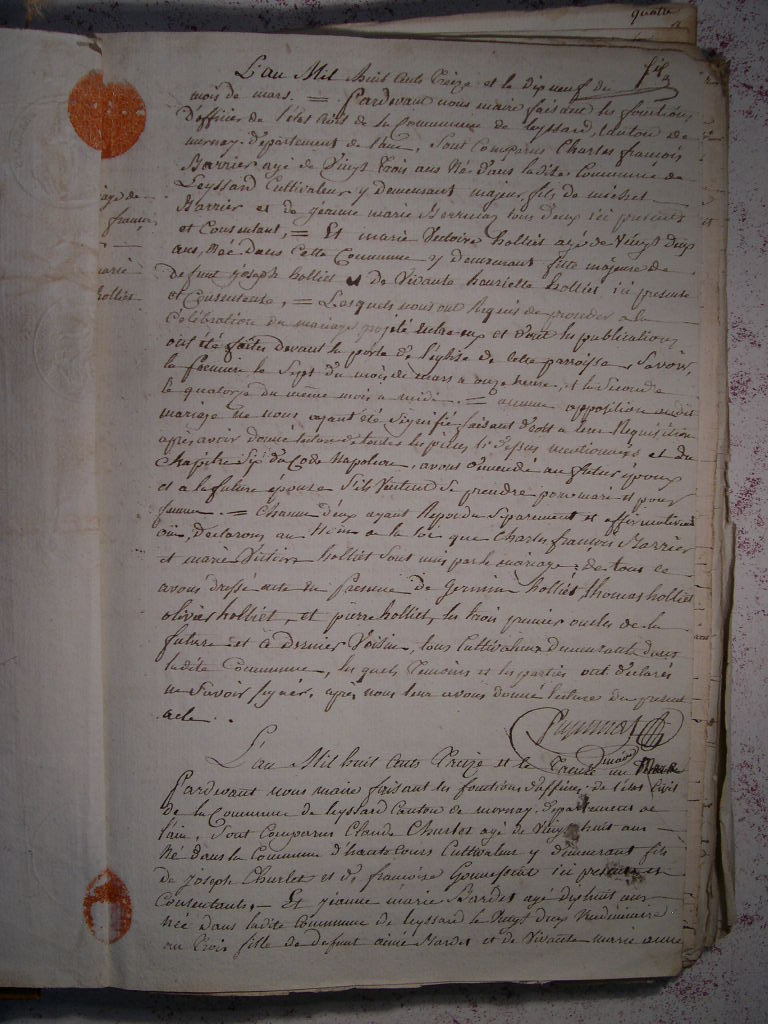 quatre
L'an Mil huit cents treize et le dix neuf du
mois de mars. = Pardevant nous maire faisant les fonctions
d'officier de l'état civil de la Commune de Leyssard, canton de
mornay, département de l'ain, Sont Comparus Charles françois
Barrier agé de Vingt trois ans Né dans ladite Commune de
Leyssard Cultivateur y demeurant majeur, fils de michel
Barrier et de jeanne marie tous deux ici presents
et Consentant, = Et marie Victoire holliet agé de Vingt deux
ans, Née dans Cette Commune y demeurant fille majeure de
defunt joseph holliet et de Vivante henriette holliet ici presente
et Consentente, = Lesquels nous ont Requis de proceder a la
Célébration du mariage projeté entre eux et dont les publications
ont été faites devant la porte de l'église de cette parroisse, Savoir,
la premiere le Sept du mois de mars a onze heure, et la Seconde
le quatorze du même mois a midi. = aucune opposition audit
mariage ne nous ayant été Signifié faisant droit a leur Requisition
après avoir donné lecture de toutes les pieces ci dessus mentionnés et du
Chapitre Six du Code Napoleon, avons demandé au futur époux
et a la future épouse S'ils Veulent Se prendre pour mari et pour
femme. = Chacun d'eux ayant Repondu Séparement et affirmativement
oui, Declarons au Nom de la loi que Charles françois Barrier
et marie Victoire holliet Sont unis par le mariage; de tous ce
avons dressé acte en presence de Germin holliet, thomas holliet
olivier holliet, et pierre holliet, les trois premier oncles de la
future et le Dernier Voisin, tous Cultivateurs Demeurants dans
ladite Commune, les quels temoins et les parties ont déclarés
ne Savoir Signer, après nous leur avons donné lecture du present
acte.
maire
L'an Mil huit cents treize et le trente un Mars
Pardevant nous maire faisant les fonctions d'officier de l'état Civil
de la Commune de leyssard Canton de mornay, Departement de
l'ain, Sont Comparus Claude Churlet agé de Vingt huit ans
Né dans la Commune d'hautecours Cultivateur y demeurant fils
de joseph Churlet et de françoise ici presents et
Consentants, = Et jeanne marie Bardet agé dixhuit ans
née dans ladite Commune de leyssard le Vingt deux Vendemiaire
an trois fille de defunt aimé Bardet et de Vivante marie anne